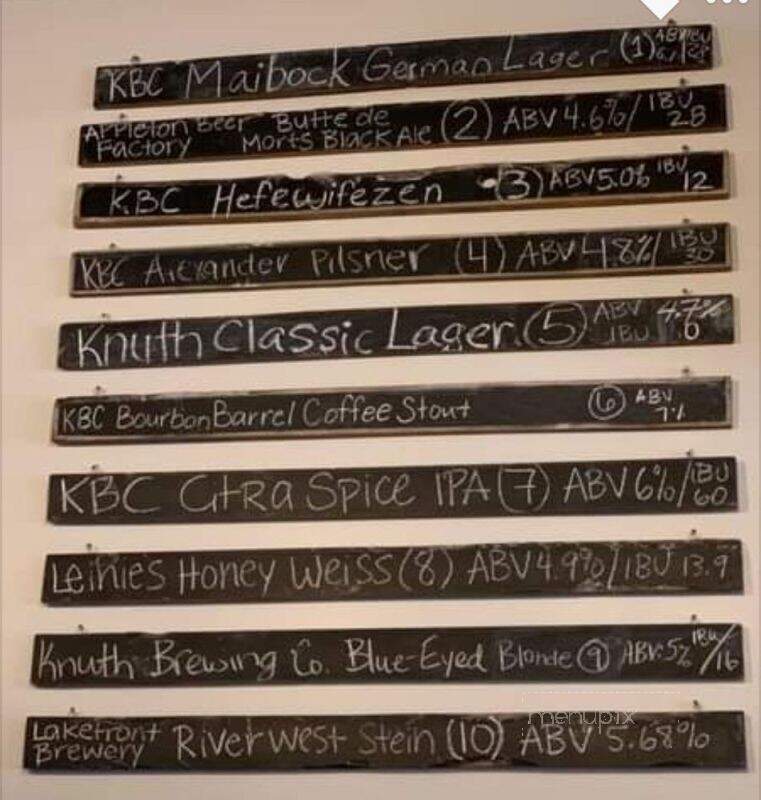 KBC Maibock German Lager (1) ABV IBU
Appleton Beer Factory Butte de Morts Black Ale (2) ABV 4.6%/ IBU 28
KBC Hefewifezen (3) ABV 5.0% IBU 12
KBC Alexander Pilsner (4) ABV 4.8%/ IBU 30
Knuth Classic Lager (5) ABV 4.7% IBU
KBC Bourbon Barrel Coffee Stout (6) ABV 7%
KBC Citra Spice IPA (7) ABV 6%/ IBU 60
Leinies Honey Weiss (8) ABV 4.9%/ IBU 13.9
Knuth Brewing Co. Blue-Eyed Blonde (9) ABV: 5% IBU/16
Lakefront Brewery Riverwest Stein (10) ABV 5.68%
menupix